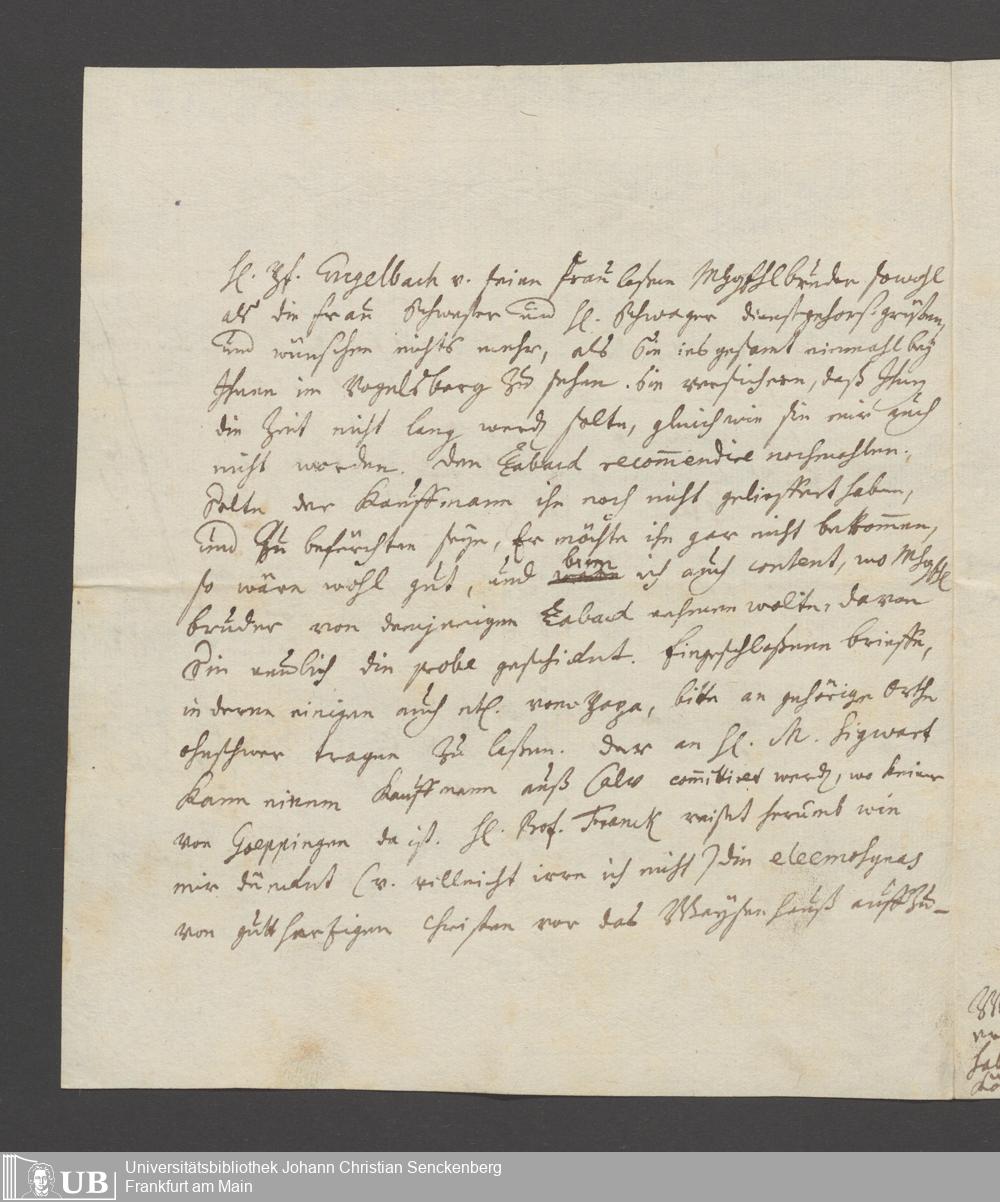 H. Pf. Engelbach v. seine Frau laßen MhgHl bruder sowohl
als die Frau Schwester und H. Schwager dienstgehorst grüßen,
und wünschen nichts mehr, als Sie ins gesamt einmahl bey
Ihnen im Vogelsberg zu sehen. Sie versichern, daß Ihnen
die Zeit nicht lang werd solte, gleich wie sie mir auch
nicht worden. Den Taback recomendire nochmahlen.
Solte der Kauffmann ihn noch nicht gelieffert haben,
und Zu beförchten seye, Er möchte ihn gar nicht bekommen,
so wäre wohl gut, und bin ich auch content, wo MhgHl
bruder von demjenigen Taback nehmen wolte, davon
Sie neulich die probe geschickt. Eingeschloßene brieffe,
in deren einigen auch etl. vom Papa, bitte an gehörige Orthe
ohnschwer tragen zu laßen. Der an H. M. Sigwart
kann einem Kauffmann auß Calw committiret werd, wo keiner
von Goeppingen da ist. H. Prof. Franck reiset herumb wie
mir dünckt (v. villeicht irre ich nicht) die eleemosynas
von gutthertzigen Christen vor das Waysenhauß auffzu-
Universitätsbibliothek Johann Christian Senckenberg
Frankfurt am Main
UB